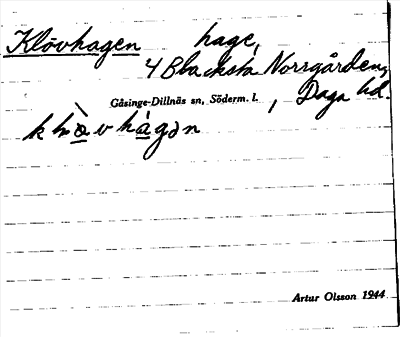 Klövhagen hage,
4 Blacksta Norrgården,
Gåsinge-Dillnäs sn, Söderm. l. , Daga hd.
Artur Olsson 1944